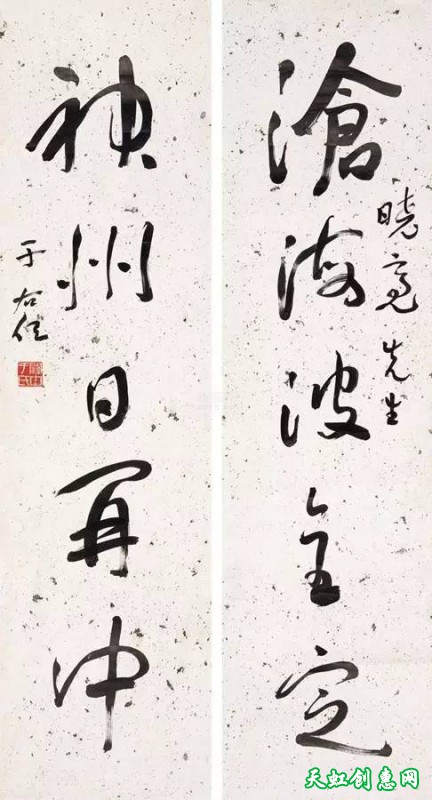 滄海波全定
曉亮先生
神州日再中
于右任
天虹创惠网